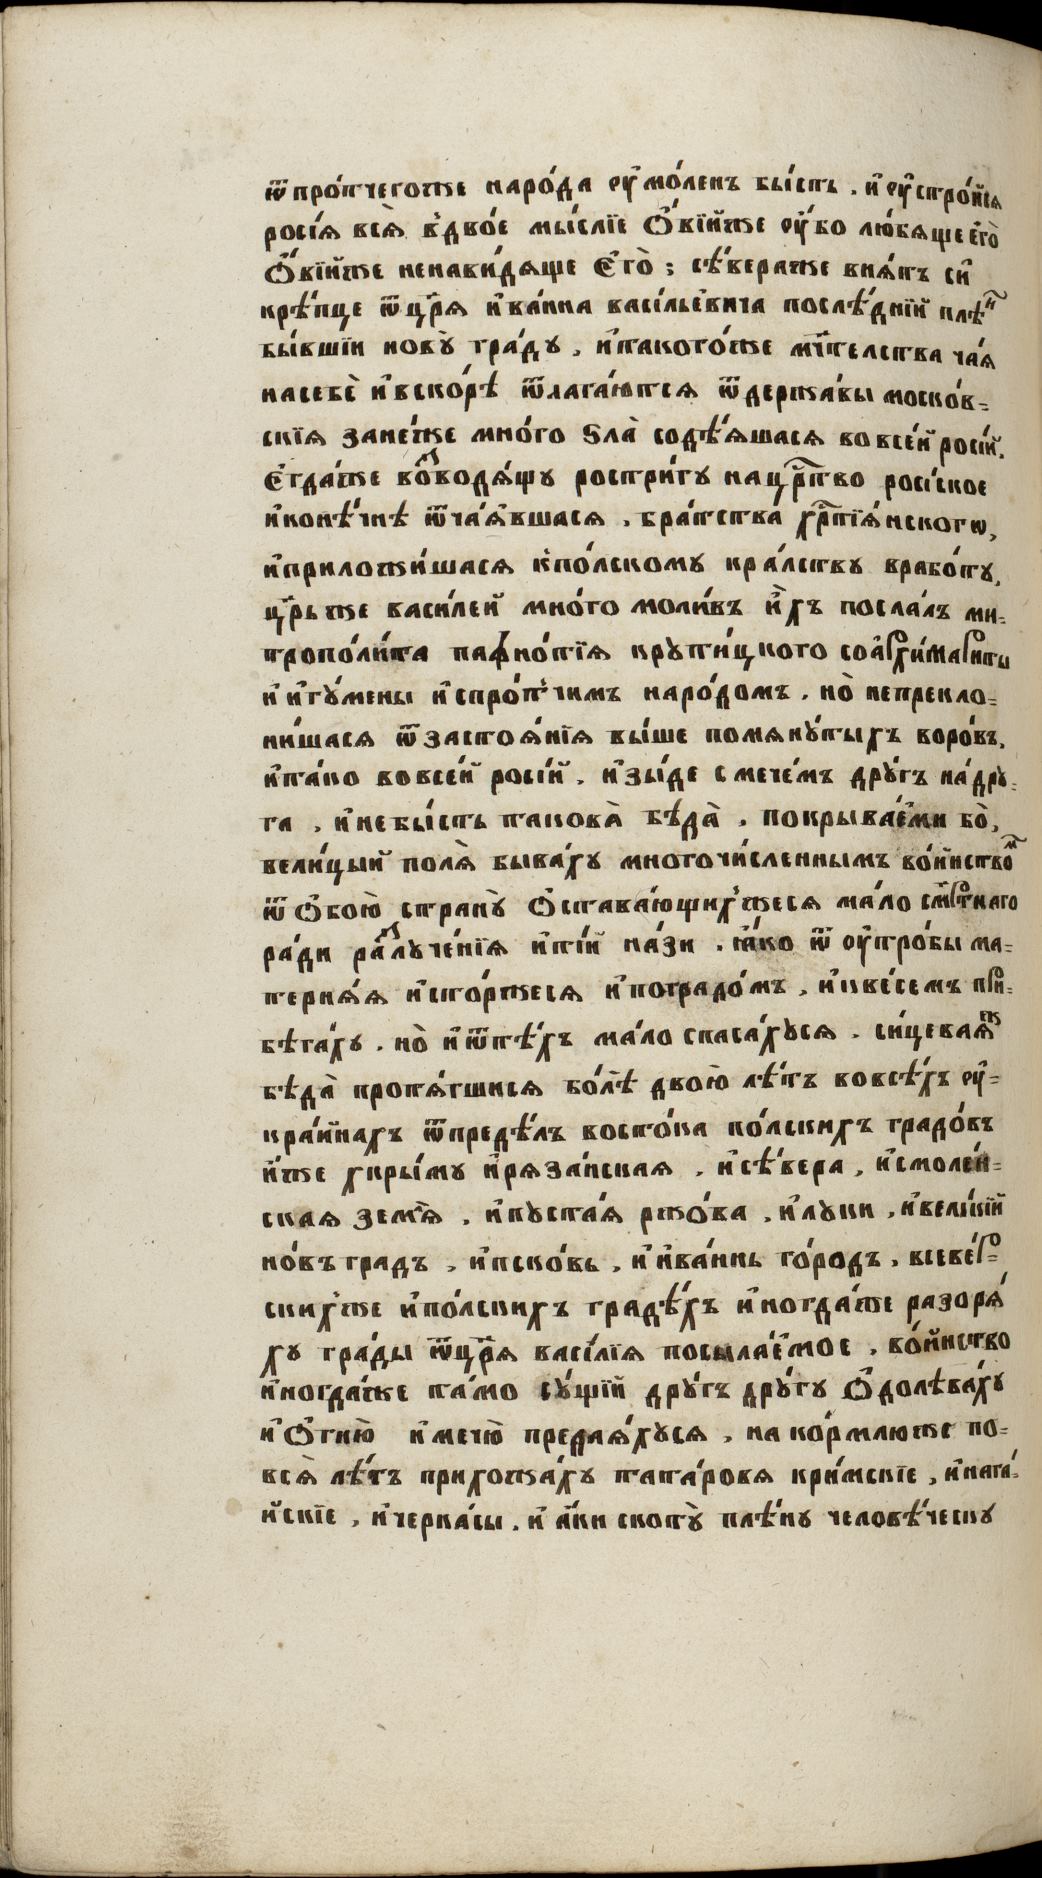 ѿ про́тчегоже наро́да ᲂу҆мо́ленъ бы́сть . и҆ ᲂу҆стро́йся
росі́я вся̀ в̾дво́е мы́слїе Ѻ҆ві́йже ᲂу҆́бо лю́бяще є҆го̀
Ѻ҆ві́йже ненави́дяще Є҆го̀ ; сѣ́вераже вня́тъ си҆
крѣ́пце ѿ цр҃я и҆ва́нна васі́льевича послѣ́днїй плѣ́н
бы́вшїи нову̀ гра́ду , и҆ такого́же мч҃тельства ча́я
на себѐ и҆ вско́рѣ ѿлага́ются ѿ держа́вы моско́в-
скїя зане́же мно́го ѕла̀ содѣ́яшася во все́й росі́й.
Є҆гда́же во́зводя́щу ростри́гу на цр҃тво росі́ское
и҆ коне́чнѣ ѿча́явшася , бра́тства хр҃тїя́нскогѡ,
и҆ приложи́шася к̾ по́лскому кра́лству в рабо́ту,
цр҃ь же васи́лей мно́го моли́въ и҆̀хъ посла́лъ ми-
трополи́та пафно́тїя крути́цкого со а҆рхима́риты
и҆ и҆гу́мены и҆ спро́тчимъ наро́домъ . но̀ непрекло-
ни́шася ѿ застоя́нїя вы́ше помяну́тыхъ воро́въ,
и҆ та́ко во все́й росі́й , и҆зы́де с мече́мъ дру́гъ на́ дру-
га , и҆ не бы́сть такова̀ бѣда̀ . покрыва́еми бо̀,
вели́цый поля̀ быва́ху многочи́сленнымъ во́йнство́м
ѿ Ѻ҆бою̀ страну̀ Ѻ҆става́ющих̾жеся ма́ло см҃ртнаго
ра́ди разлуче́нїя и҆ ті́й на́зи . ꙗ҆́ко ѿ ᲂу҆тро́бы ма-
терня́я и҆сто́ржеся и҆ по градо́мъ , и҆ к ве́семъ при-
бѣга́ху . но̀ и҆ ѿ тѣ́хъ ма́ло спаса́хуся . си́цеваяж
бѣда̀ протя́гшися бо́лѣ двою̀ лѣ́тъ во всѣ́хъ ᲂу҆-
кра́йнахъ ѿ предѣ́лъ восто́ка по́лскихъ градо́въ
и҆́же х кры́му и҆ ряза́нская , и҆ сѣ́вера , и҆ смоле́н-
ская земля̀ , и҆ пуста́я ржо́ва , и҆ лу́ки , и҆ вели́кїй
но́въ градъ , и҆ пско́въ , и҆ и҆ва́нь го́родъ , все ве́р-
скихже и҆ по́лскихъ градѣ́хъ и҆ногда́же разоря́
ху гра́ды ѿ цр҃я васі́лїя посыла́емое , во́йнство
и҆ногда́же та́мо су́щїй дру́гъ дру́гу Ѻ҆долѣва́ху
и҆ Ѻ҆гню̀ и҆ мечю̀ предая́хуся , на ко́рмлюже по-
вся̀ лѣ́тъ прихожа́ху тата́ровя кри́мскїе , и҆ нага́-
йскїе , и҆ черка́сы , и҆ а҆́ки скоту̀ плѣ́ну человѣ́чєску